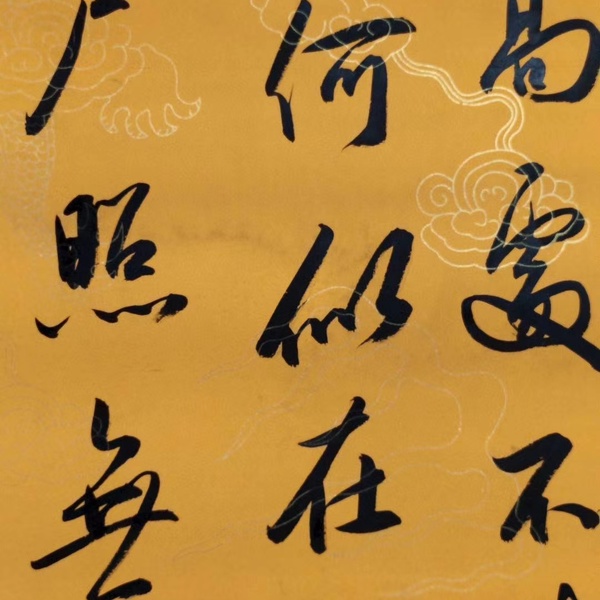 高處不
何似在
户照無